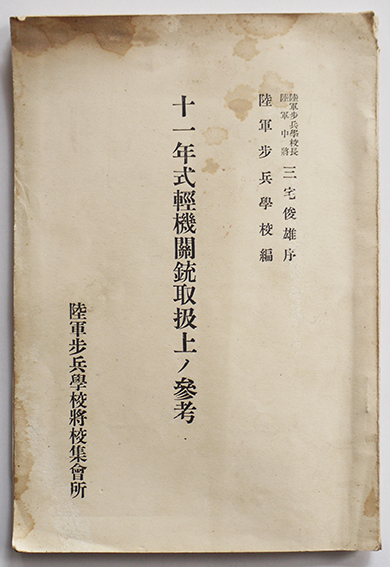 陸軍步兵學校長
陸軍中將
三宅俊雄序
陸軍步兵學校編
十一年式輕機關銃取扱上ノ參考
陸軍步兵學校將校集會所